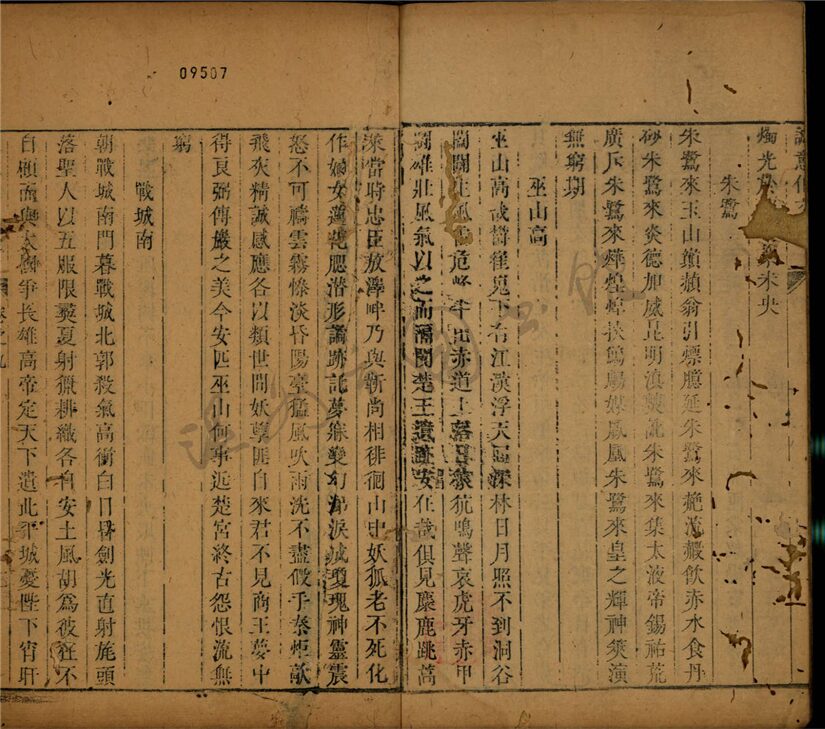 09507
燭光 未央
朱鷺
朱鷺來玉山 翁引 延朱鷺來 流 飲赤水食丹
砂朱鷺來炎德加威昆明滇 朱鷺來集太液帝錫祐荒
廣斥朱鷺來煒煌 媒鳳凰朱鷺來皇之輝神筴演
無窮期
巫山高
巫山高哉 崔嵬下右江漢浮天 深林日月照不到洞谷
生風 危峰 出赤道上落日 狖鳴聲哀虎牙赤甲
鬬雄壯風氣以之而 閉楚王遺蹤安在哉俱見麋鹿跳蒿
萊當時忠臣放澤畔乃與靳尚相徘徊山中妖狐老不死化
作婦女蓮花腮潛形譎跡託夢寐變幻涕淚成瓊瑰神靈震
怒不可禱雲霧慘淡昏陽臺猛風吹雨洗不盡假手秦炬歘
飛灰精誠感應各以類世間妖孽匪自來君不見商王夢中
得良弼傅巖之美今安匹巫山何事近楚宮終古怨恨流無
窮
戰城南
朝戰城南門暮戰城北郭殺氣高衝白日昏劍光直射旄頭
落聖人以五服限蠻夏射獵耕織各自安土風胡爲彼狂不
自願而與大 爭長雄高帝定天下遣此平城憂陛下宵旰